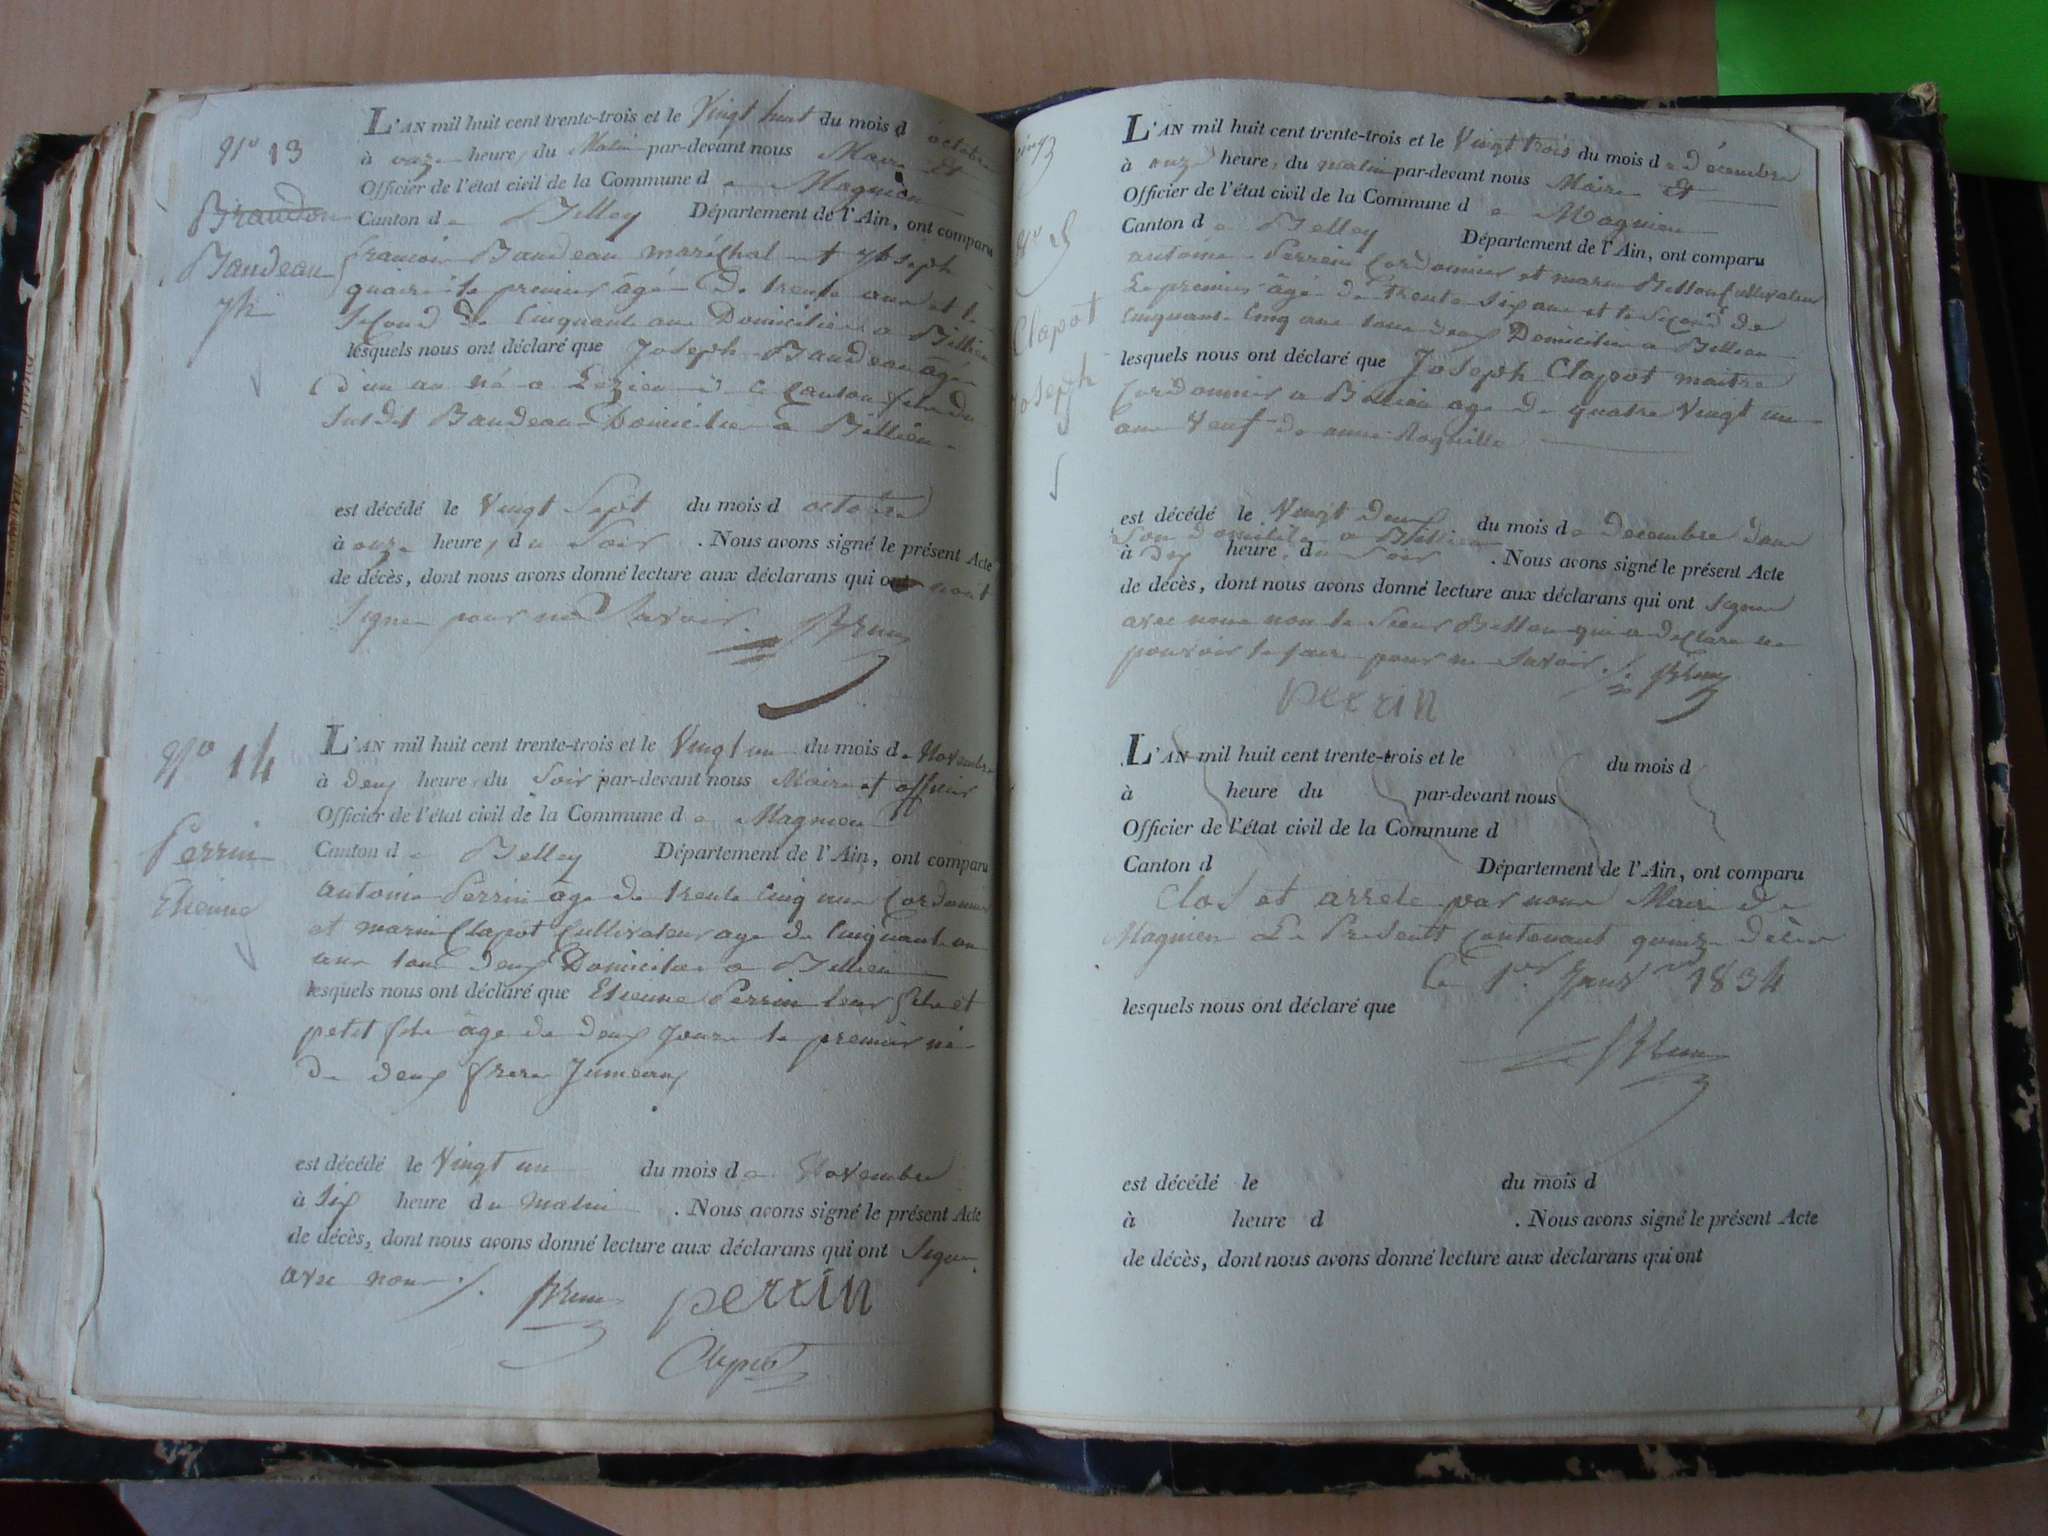 N° 13
Braudon
Baudeau
Jh
L'AN mil huit cent trente-trois et le Vingt huit du mois d octobre
à onze heures du Matin par-devant nous Maire &
Officier de l'état civil de la Commune de Magnieu
Canton de Belley Département de l'Ain, ont comparu
francois Baudeau maréchal et Joseph
le premier âgé de trente ans et le
Second de Cinquante ans Domiciliés a Billieu
lesquels nous ont déclaré que Joseph Baudeau âgé
d'un an né a Canton fils du
Susdit Baudeau Domicilié a Billieu
est décédé le Vingt Sept du mois d octobre
à onze heures du Soir . Nous avons signé le présent Acte
de décès, dont nous avons donné lecture aux déclarans qui ont n'ont
Signé pour ne Savoir. Brun
N° 14
Perrin
Etienne
L'AN mil huit cent trente-trois et le Vingt un du mois de Novembre
à deux heures du Soir par-devant nous Maire et officier
Officier de l'état civil de la Commune de Magnieu
Canton de Belley Département de l'Ain, ont comparu
antoine Perrin âgé de trente Cinq ans Cordonnier
et marin Clapot Cultivateur age de Cinquante un
ans tous deux Domiciliés a Billieu
lesquels nous ont déclaré que Etienne Perrin leur fils et
petit fils âgé de deux Jours le premier né
de deux frères Jumeaux
est décédé le Vingt un du mois de Novembre
à Six heure du matin . Nous avons signé le présent Acte
de décès, dont nous avons donné lecture aux déclarans qui ont Signé
avec nous /. Brun perrin
Clapot
cinq
N° 15
Clapot
Joseph
L'AN mil huit cent trente-trois et le Vingt trois du mois de décembre
à onze heures du matin par-devant nous Maire &
Officier de l'état civil de la Commune de Magnieu
Canton de Belley Département de l'Ain, ont comparu
antoine Perrin Cordonnier et marin Billon Cultivateur
Le premier âgé de trente Six ans et le Second de
Cinquante Cinq ans tous deux Domiciliés a Billieu
lesquels nous ont déclaré que Joseph Clapot maitre
Cordonnier a Billieu age de quatre Vingt un
ans Veuf de anne Roquille
est décédé le Vingt deux du mois de decembre dans
Son domicile a Billieu
à dix heure du Soir . Nous avons signé le présent Acte
de décès, dont nous avons donné lecture aux déclarans qui ont Signé
avec nous non le Sieur Billon qui a déclaré ne
pouvoir le faire pour ne Savoir /. Brun
perrin
L'AN mil huit cent trente-trois et le du mois d
à heure du par-devant nous
Officier de l'état civil de la Commune d
Canton d Département de l'Ain, ont comparu
Clos et arrêté par nous Maire de
Magnieu Le Présent Contenant quinze décès
Le 1er Janvier 1834
lesquels nous ont déclaré que
Brun
est décédé le du mois d
à heure d . Nous avons signé le présent Acte
de décès, dont nous avons donné lecture aux déclarans qui ont